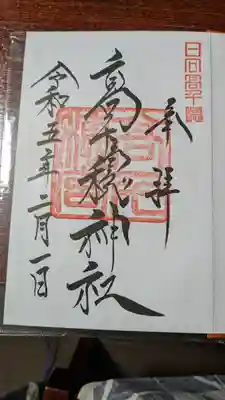 日向高千穂
奉拝
高千穂神社
令和五年二月一日